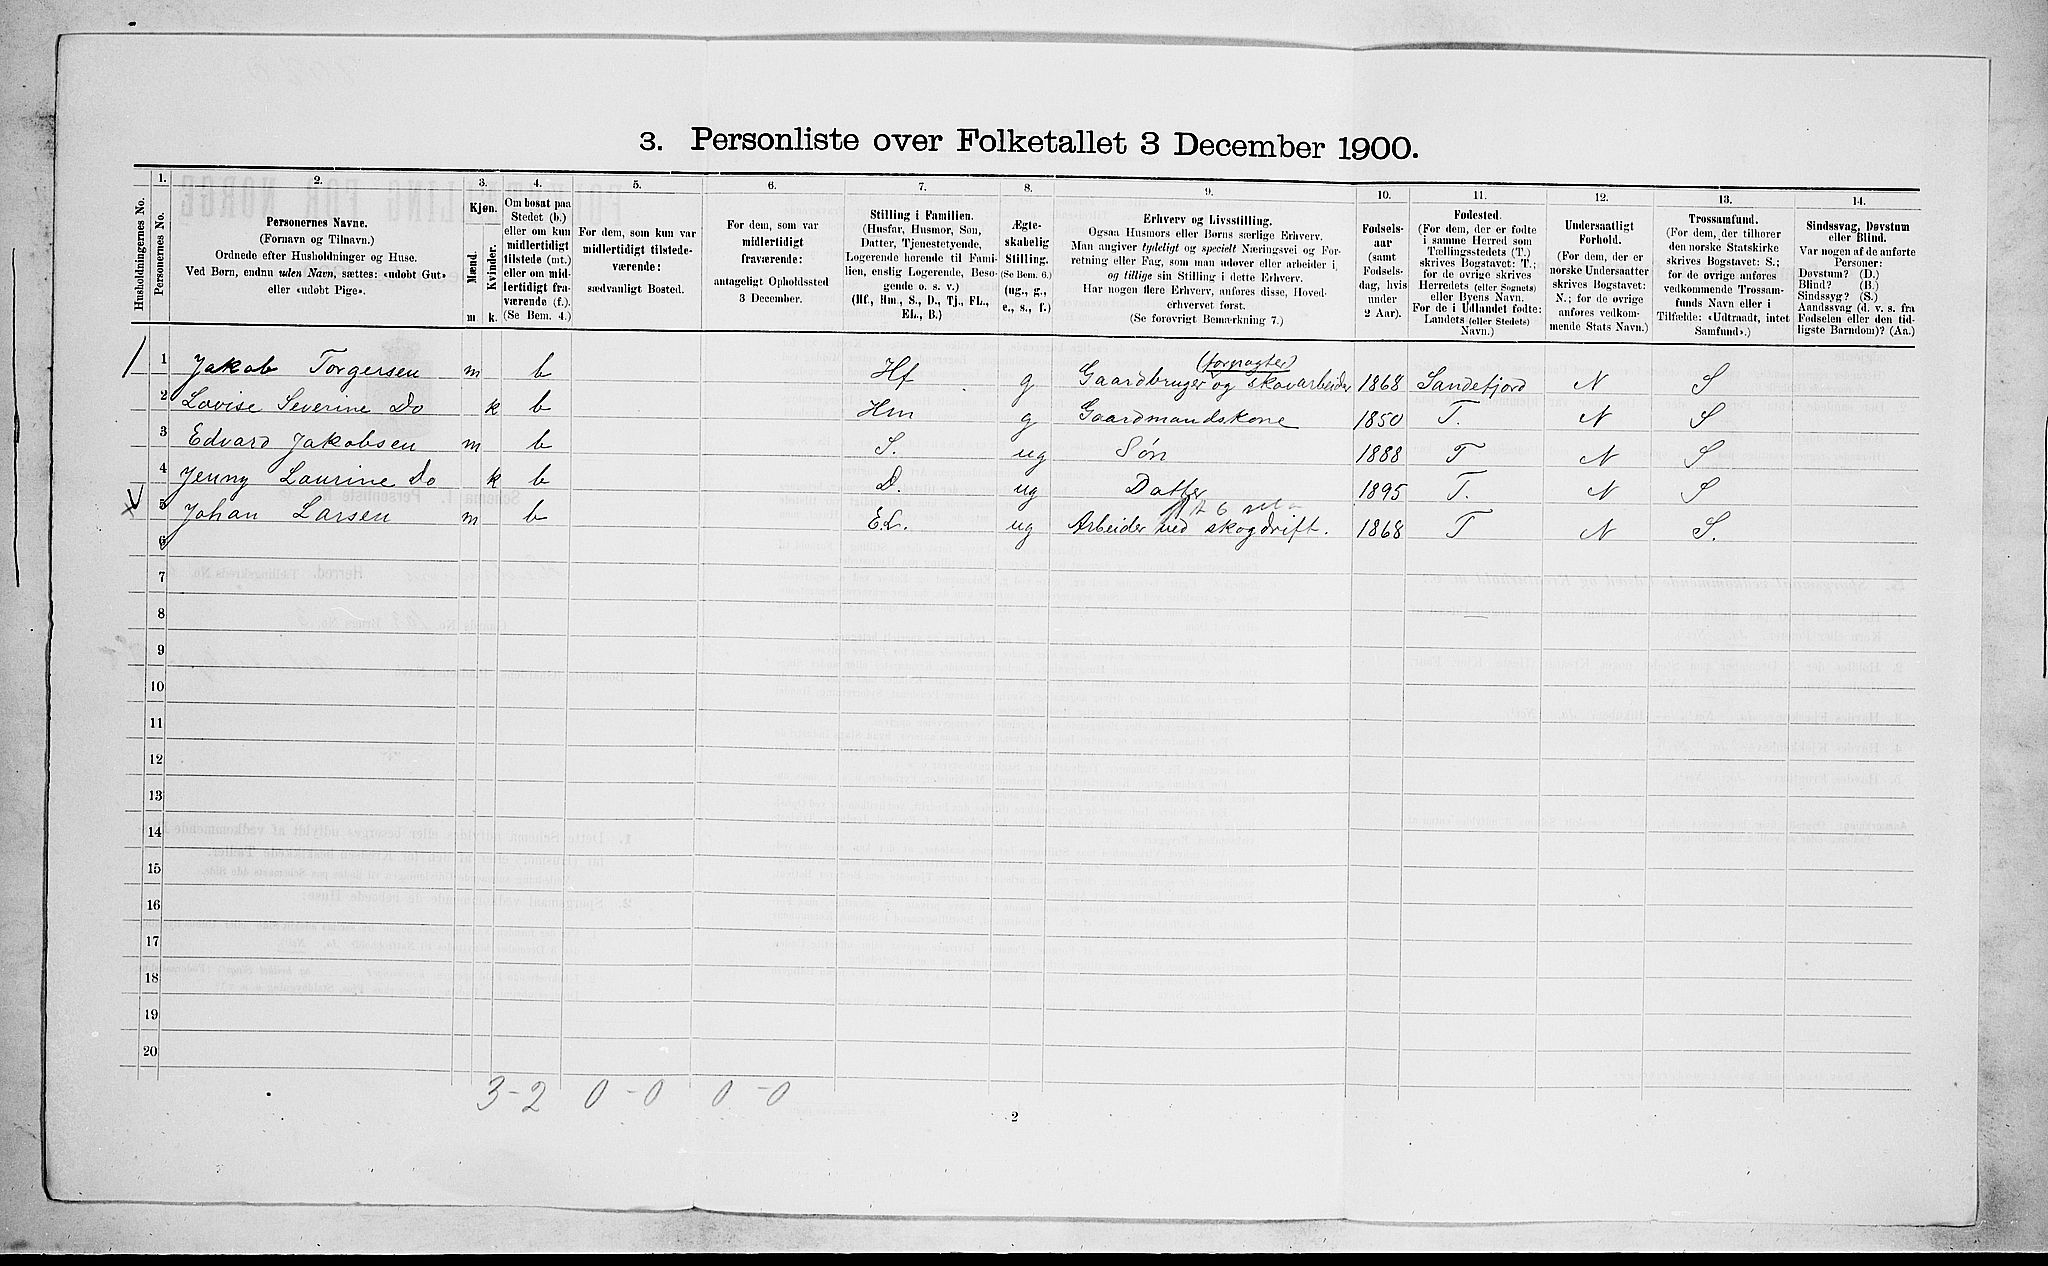 3. Personliste over Folketallet 3 December 1900.
1. 2. 3. 4. 5. 6. 7. 8. 9. 10. 11. 12. 13. 14.
Husholdningernes No.
Personernes No.
Personernes Navne.
(Fornavn og Tilnavn.)
Ordnede efter Husholdninger og Huse.
Ved Børn, endnu uden Navn, sættes: «udøbt Gut»
eller «udøbt Pige».
Kjøn.
Mænd.
Kvinder.
m k.
Om bosat paa
Stedet (b.)
eller om kun
midlertidigt
tilstede (mt.)
eller om mid-
lertidigt fra-
værende (f.).
(Se Bem. 4.)
For dem, som kun var
midlertidigt tilstede-
værende:
sædvanligt Bosted.
For dem, som var
midlertidigt
fraværende:
antageligt Opholdssted
3 December.
Stilling i Familien.
(Husfar, Husmor, Søn,
Datter, Tjenestetyende,
Logerende hørende til Fami-
lien, enslig Logerende, Besø-
gende o. s. v.)
(Hf., Hm., S., D., Tj., FL.,
EL., B.)
Ægte-
skabelig
Stilling.
(Se Bem. 6.)
(ug., g.,
e., s., f.)
Erhverv og Livsstilling.
Ogsaa Husmors eller Børns særlige Erhverv.
Man angiver tydeligt og specielt Næringsvei og For-
retning eller Fag, som man udøver eller arbeider i,
og tillige sin Stilling i dette Erhverv.
Har nogen flere Erhverv, anføres disse, Hoved-
erhvervet først.
(Se forøvrigt Bemærkning 7.)
Fødsels-
aar
(samt
Fødsels-
dag, hvis
under
2 Aar).
Fødested.
(For dem, der er fødte
i samme Herred som
Tællingsstedets (T.)
skrives Bogstavet: T.;
for de øvrige skrives
Herredets (eller Sognets)
eller Byens Navn.
For de i Udlandet fødte:
Landets (eller Stedets)
Navn.)
Undersaatligt
Forhold.
(For dem, der er
norske Undersaatter
skrives Bogstavet:
N.; for de øvrige
anføres vedkom-
mende Stats Navn.)
Trossamfund.
(For dem, der tilhører
den norske Statskirke
skrives Bogstavet: S.;
for de øvrige anføres
vedkommende Trossam-
funds Navn eller i
Tilfælde: «Udtraadt, intet
Samfund».)
Sindssvag, Døvstum
eller Blind.
Var nogen af de anførte
Personer:
Døvstum? (D.)
Blind? (B.)
Sindssyg? (S.)
Aandssvag (d. v. s. fra
Fødselen eller den tid-
ligste Barndom)? (Aa.)
1 Jakob Torgersen m b Hf g Gaardbruger (forpagter) og skovarbeider 1868 Sandefjord N S
2 Lovise Severine Do k b Hm g Gaardmandskone 1850 T. N S
3 Edvard Jakobsen m b S. ug Søn 1888 T N S
4 Jenny Laurine Do k b D. ug Datter 1895 T. N S
5 Johan Larsen m b EL. ug Arbeider ved skogdrift. 1868 T N S.
6
7
8
9
10
11
12
13
14
15
16
17
18
19
20
3-2 0-0 0-0
2